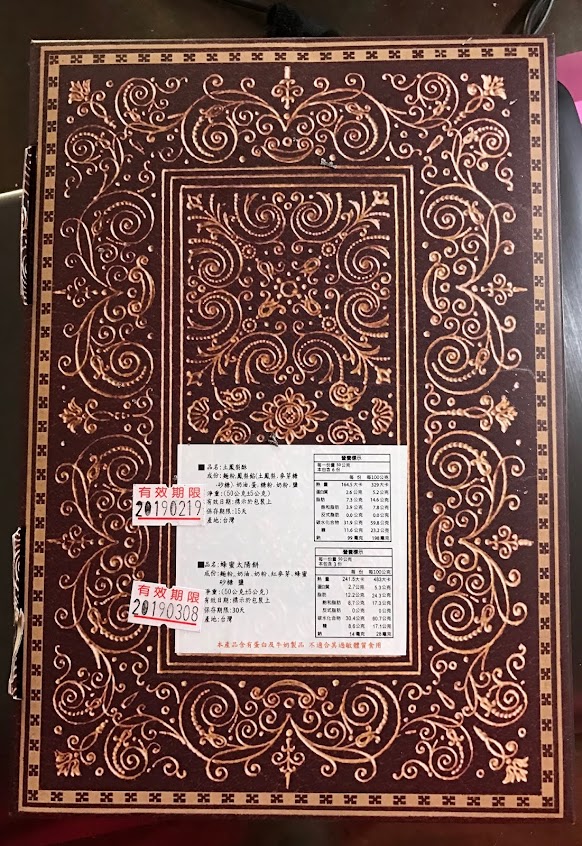 ■品名:土鳳梨酥
成份:麵粉,鳳梨餡(土鳳梨.麥芽糖
.砂糖) 奶油.蛋.糖粉.奶粉.鹽
淨重:(50公克±5公克)
有效日期:標示於包裝上
保存期限:15天
產地:台灣
有效期限
20190219
營養標示
每一份量 50公克
本包裝含 6 份
每 份 每100公克
熱 量 164.5大卡 329大卡
蛋白質 2.6公克 5.2公克
脂肪 7.3公克 14.6公克
飽和脂肪 3.9公克 7.8公克
反式脂肪 0.0公克 0.0公克
碳水化合物 31.9公克 59.8公克
糖 11.6公克 23.2公克
鈉 99毫克 198毫克
■品名:蜂蜜太陽餅
成份:麵粉.奶油.奶粉.紅麥芽.蜂蜜
砂糖 鹽
淨重:(50公克±5公克)
有效日期:標示於包裝上
保存期限:30天
產地:台灣
有效期限
20190308
營養標示
每一份量 50公克
每 份 每100公克
熱 量 241.5大卡 483大卡
蛋白質 2.7公克 5.3公克
脂肪 12.2公克 24.3公克
飽和脂肪 8.7公克 17.3公克
反式脂肪 0公克 0公克
碳水化合物 30.4公克 60.7公克
糖 8.6公克 17.1公克
鈉 14毫克 28毫克
本產品含有蛋白及牛奶製品 不適合其過敏體質食用